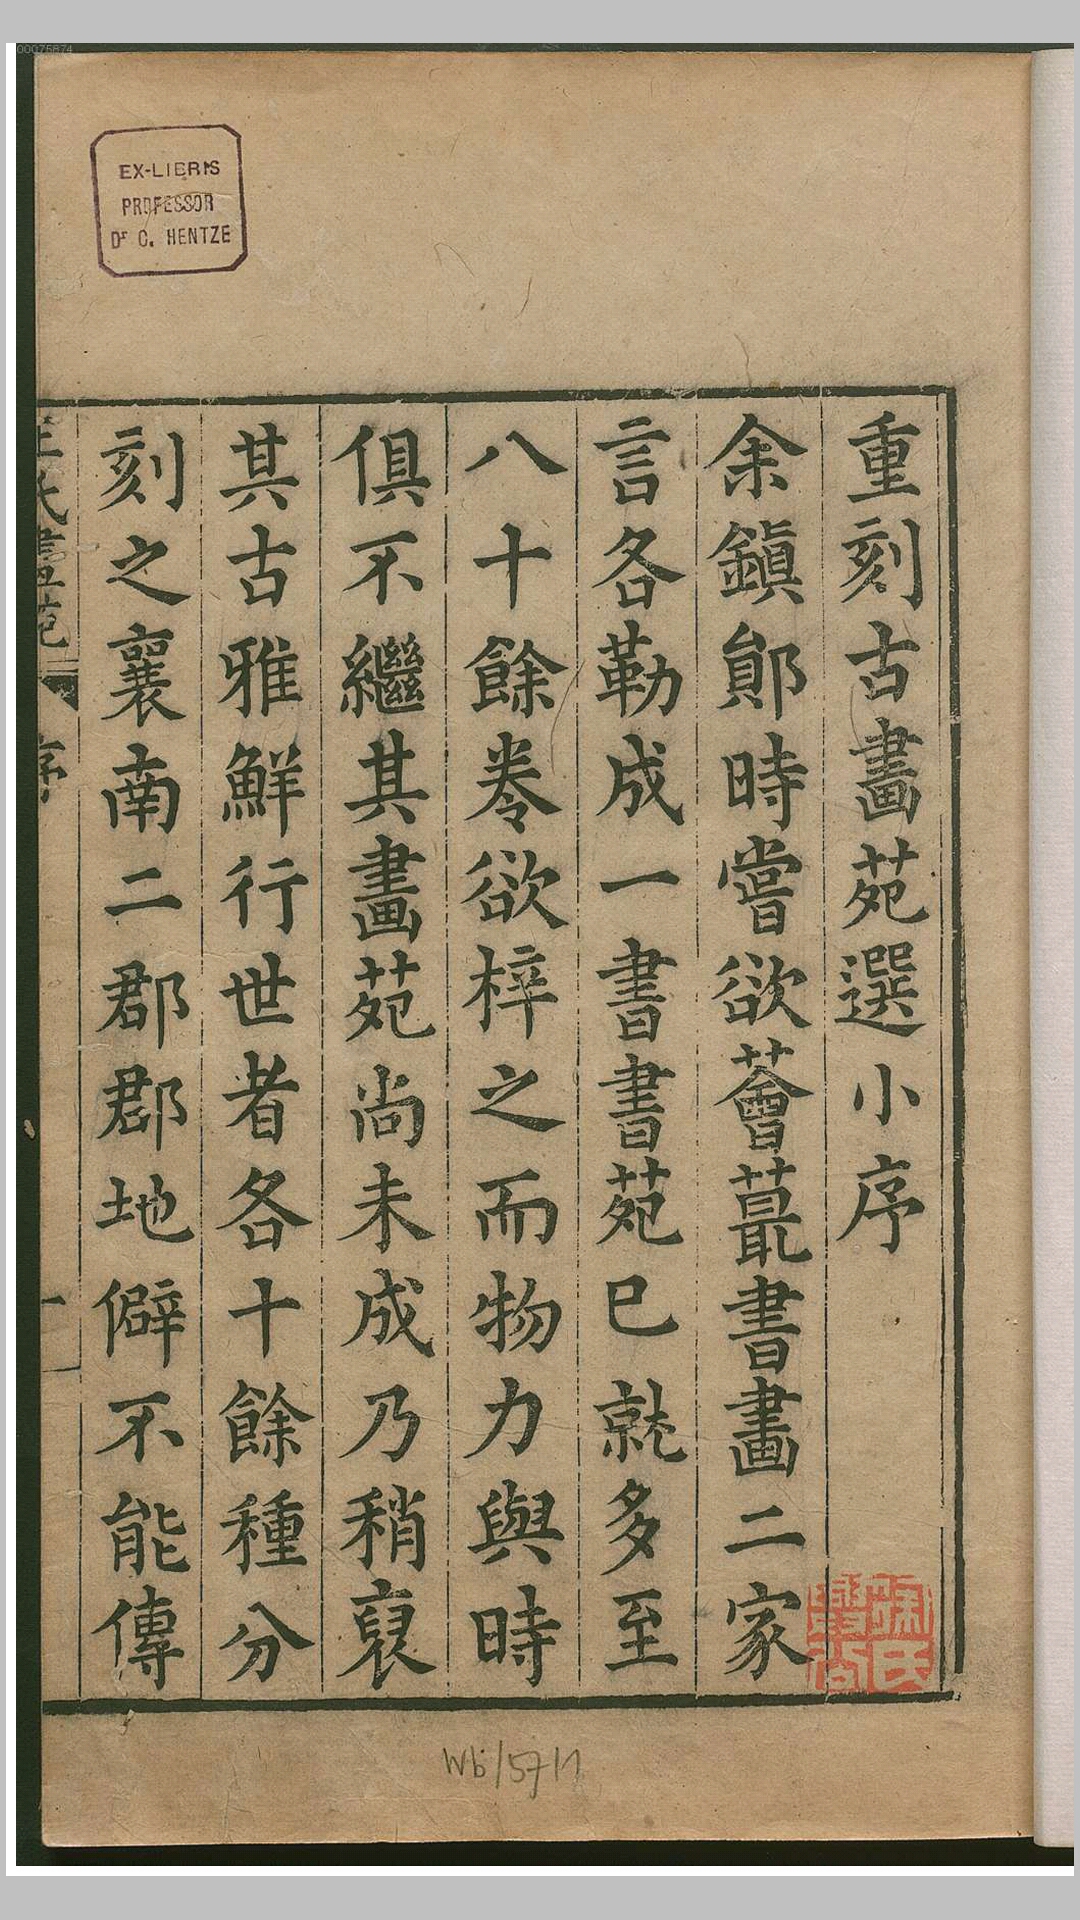 00075874
EX-LIBRIS
PROFESSOR
Dr C. HENTZE
重刻古畫苑選小序
余鎮鄖時嘗欲薈蕞書畫二家
言各勒成一書書苑已就多至
八十餘卷欲梓之而物力與時
俱不繼其畫苑尚未成乃稍裒
其古雅鮮行世者各十餘種分
刻之襄南二郡郡地僻不能傳
王氏畫苑 序 一
Wb/57/1